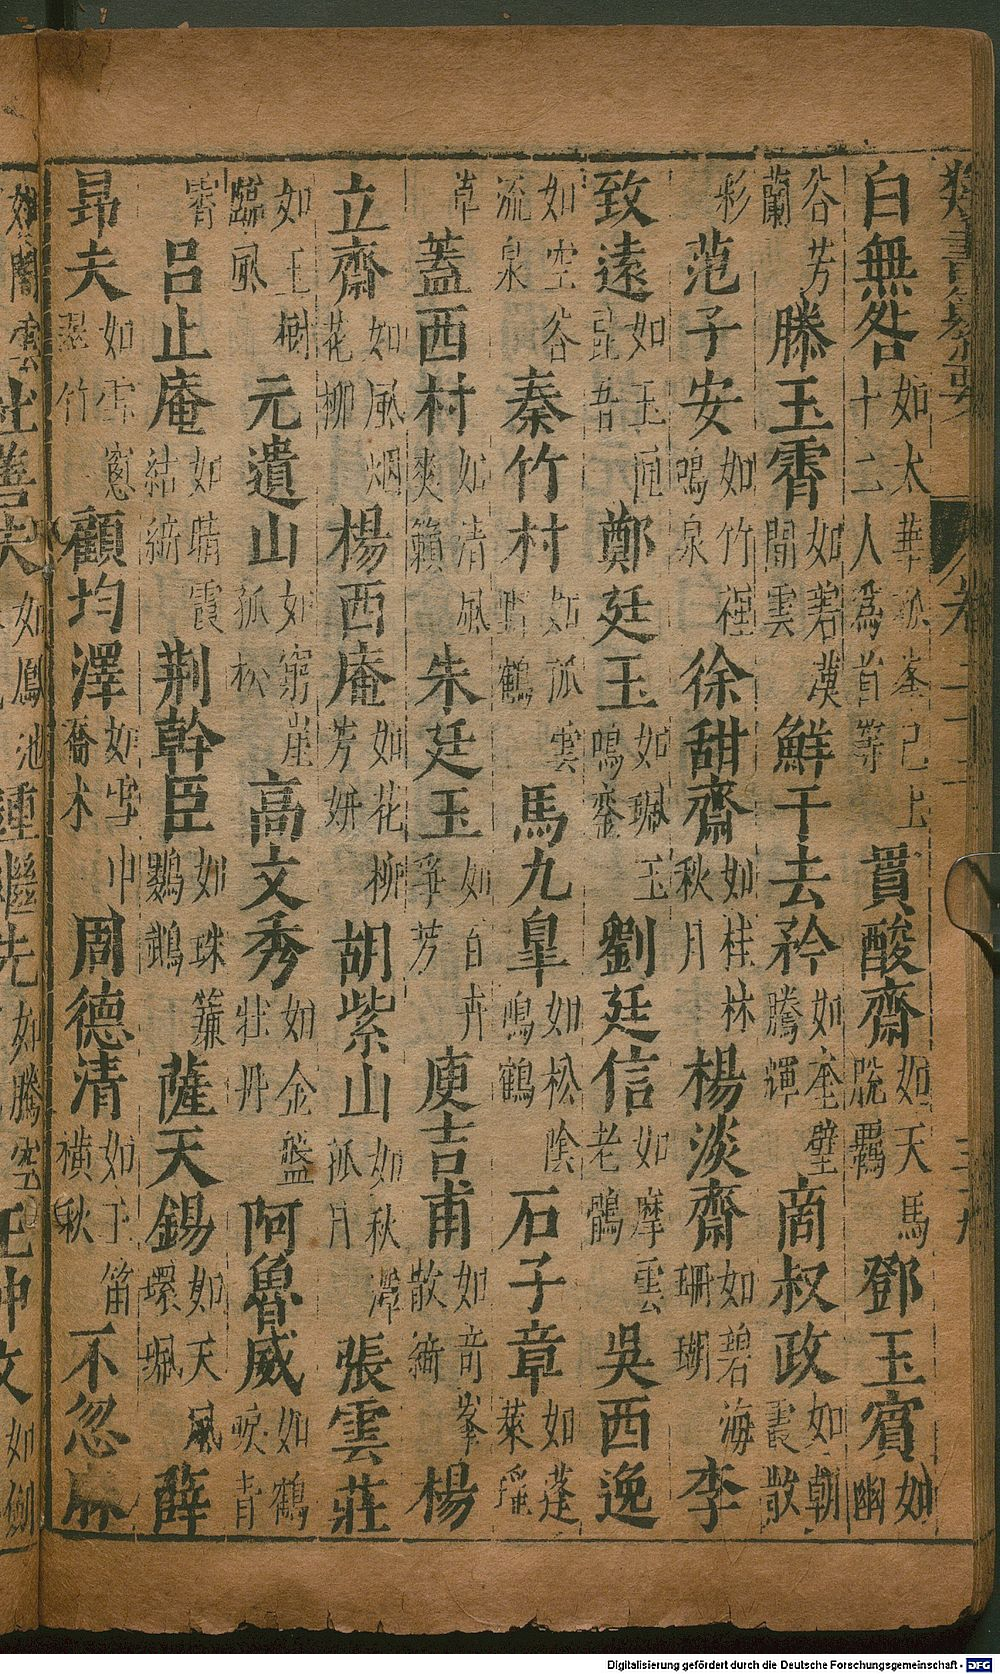 白無咎如太華孤峯已上十二人為首等 貫酸齋如天馬脫羈 鄧玉賓如幽
谷芳蘭 滕玉霄如碧漢閒雲 鮮于去矜如奎壁騰輝 商叔政如朝霞散
彩 范子安如竹裡鳴泉 徐甜齋如桂林秋月 楊淡齋如碧海珊瑚 李
致遠如玉匣昆吾 鄭廷玉如珮玉鳴鑾 劉廷信如摩雲老鶻 吳西逸
如空谷流泉 秦竹村如孤雲野鶴 馬九皐如松陰鳴鶴 石子章如蓬萊瑤
草 蓋西村如清風爽籟 朱廷玉如百卉爭芳 庾吉甫如奇峯散綺 楊
立齋如風烟花柳 楊西庵如花柳芳妍 胡紫山如秋潭孤月 張雲莊
如玉樹臨風 元遺山如窮崖孤松 高文秀如金盤壯丹 阿魯威如鶴唳青
霄 呂止庵如晴霞結綺 荆幹臣如珠簾鸚鵡 薩天錫如天風環珮 薛
昂夫如雪窻翠竹 顧均澤如雪中喬木 周德清如玉笛橫秋 不忽麻
如閒雲 杜善夫如鳳池 鍾繼先如騰空 王仲文如劍
Digitalisierung gefördert durch die Deutsche Forschungsgemeinschaft - DFG